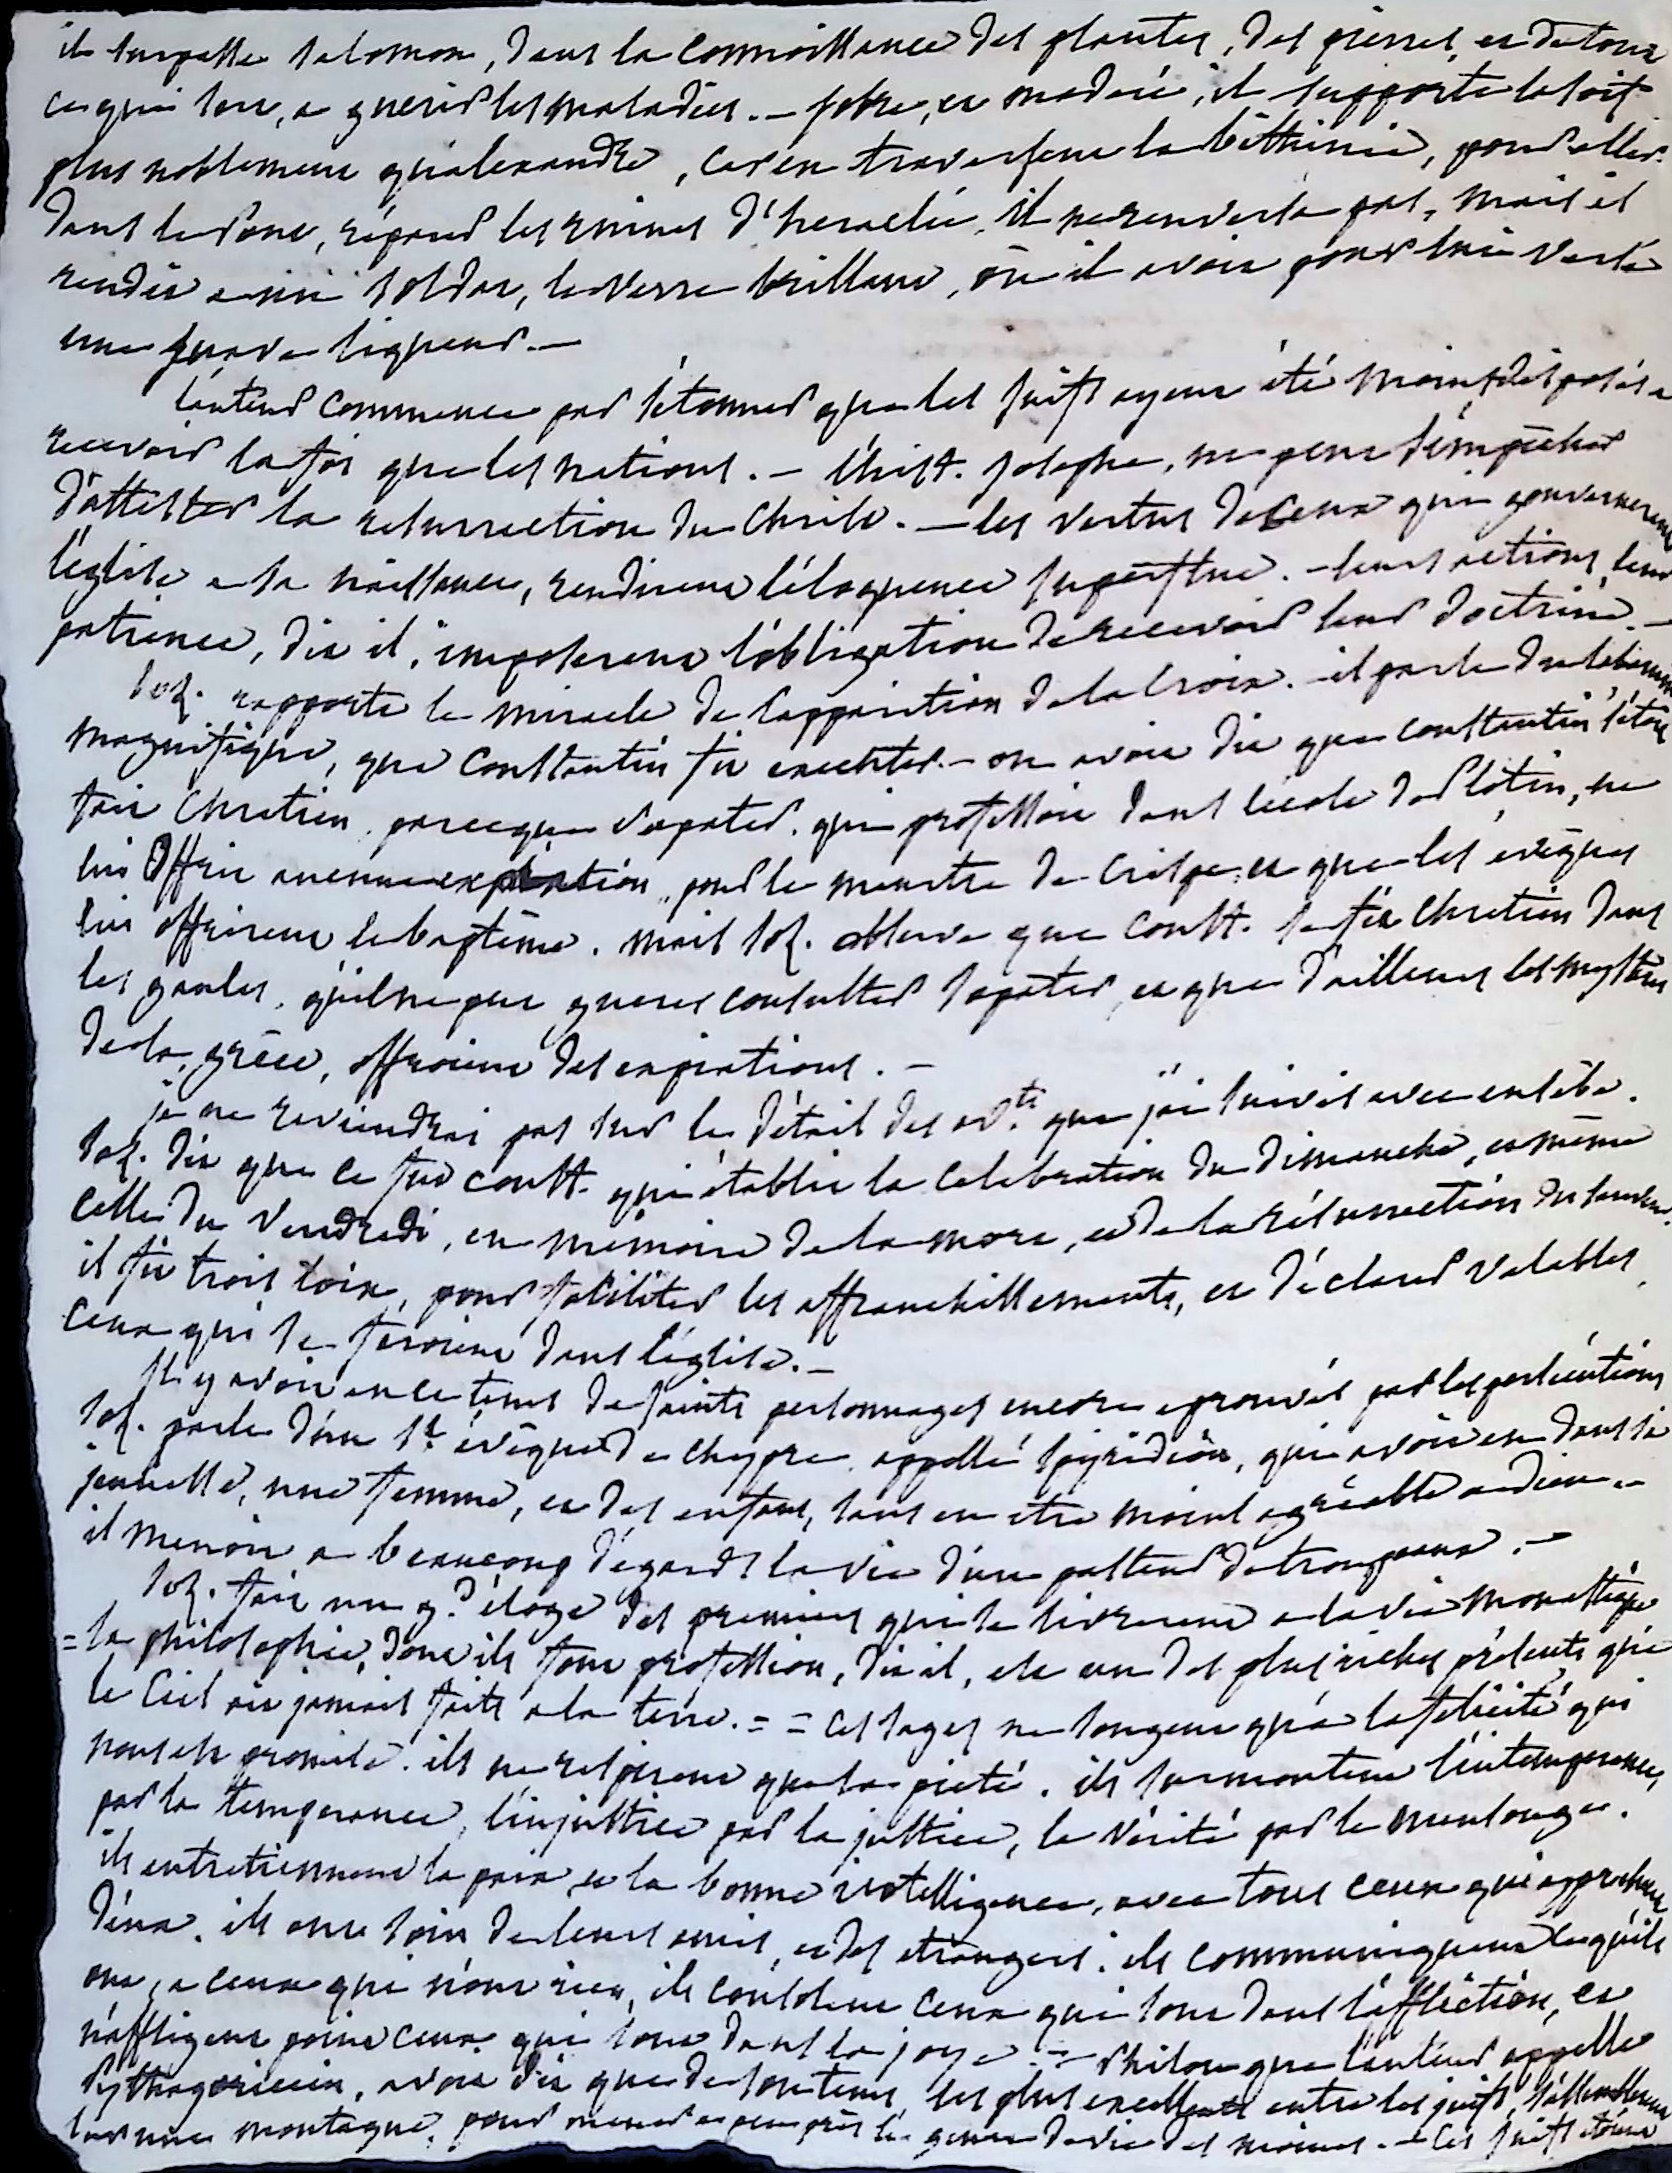 il surpasse Salomon, dans la connoissance des plantes, des pierres, et de tout
ce qui sert, a guerir les maladies. – sobre, et modéré, il supporte la soif
plus noblement qu'alexandre, car en traversant la bithinie, pour aller
dans le Pont, réparer les ruines d'heraclée, il ne renversa pas, mais il
rendit a un soldat, le verre brillant, où il avoit pour lui versé
une suave liqueur. –
l'auteur commence par s'étonner que les juifs ayent été moins disposés a
recevoir la foi que les nations. – l'hist. josephe, ne peut s'empêcher
d'attester la resurrection du Christ. – les vertus de ceux qui gouvernerent
l'église a sa naissance, rendirent l'éloquence superflue. – leurs actions, leur
patience, dit il, imposerent l'obligation de recevoir leur doctrine. –
Soz. rapporte le miracle de l'apparition de la Croix. – il parle du labarum
magnifique, que Constantin fit executer. – on avoit dit que constantin s'étoit
fait Chretien, parceque Sopater, qui professoit dans l'ecole de Plotin, ne
lui offrit aucune expiation, pour le meurtre de Crispe, et que les evêques
lui offrirent le baptême. mais Soz. observe que Const. se fit Chretien dans
les gaules, qu'il ne put gueres consulter Sopater, et que d'ailleurs les mystères
de la grèce, offroient des expiations. –
je ne reviendrai pas sur le détail des ev.ts que j'ai suivis avec eusèbe.
Soz. dit que ce fut const. qui établit la celebration du dimanche, et même
celle du Vendredi, en mémoire de la mort, et de la résurrection du sauveur.
il fit trois loix, pour faciliter les affranchissements, et déclarer valables
ceux qui se feroient dans l'église. –
Il y avoit en ce tems de saints personnages encore eprouvés par les persécutions
Soz. parle d'un St. évêque de chypre, appellé Spyridion, qui avoit eu dans sa
jeunesse, une femme, et des enfans, sans en etre moins agréable a dieu. –
il menoit a beaucoup d'égards la vie d'un pasteur de troupeaux. –
Soz. fait un gd. éloge des premiers qui se livrerent a la vie monastique
= la philosophie, dont ils font profession, dit il, est un des plus riches présents que
le Ciel ait jamais faits a la terre. = = ces sages ne songent qu'à la felicité qui
nous est promise. ils ne respirent que la pieté. ils surmontent l'intemperance,
par la temperance, l'injustice par la justice, la vérité par le mensonge.
ils entretiennent la paix, et la bonne intelligence, avec tous ceux qui approchent
d'eux. ils ont soin de leurs amis, et des etrangers. ils communiquent ce qu'ils
ont, a ceux qui n'ont rien, ils consolent ceux qui sont dans l'affliction, et
n'affligent point ceux qui sont dans la joye. – Philon que l'auteur appelle
Pythagoricien, avoit dit que de son tems, les plus excellents entre les juifs, s'assembloient
sur une montagne, pour mener a peu près le genre de vie des moines. – Ces juifs étoient